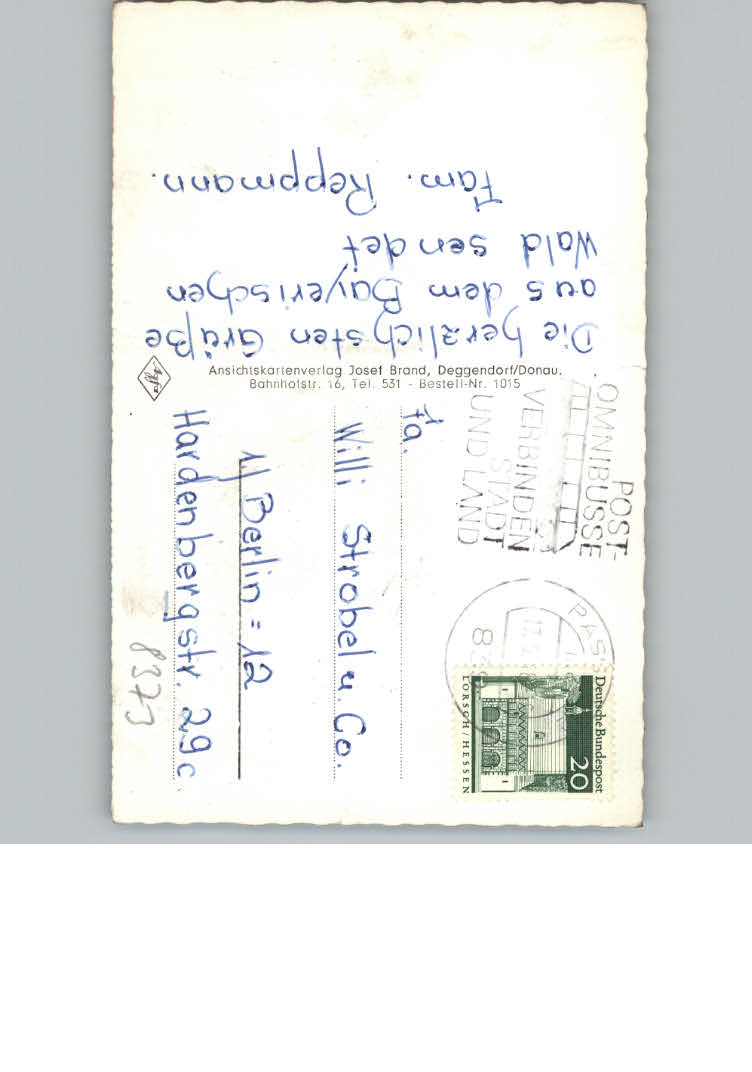 Die herzlichsten Grüße
aus dem Bayerischen
Wald sendet
Fam. Reppmann.
Ansichtskartenverlag Josef Brand, Deggendorf/Donau.
Bahnhofstr. 16, Tel. 531 - Bestell-Nr. 1015
Agfa
POST-
OMNIBUSSE
VERBINDEN
STADT
UND LAND
PASS
Deutsche Bundespost
20
LORSCH/HESSEN
Fa.
Willi Strobel u. Co.
1) Berlin = 12
Hardenbergstr. 29c
8373